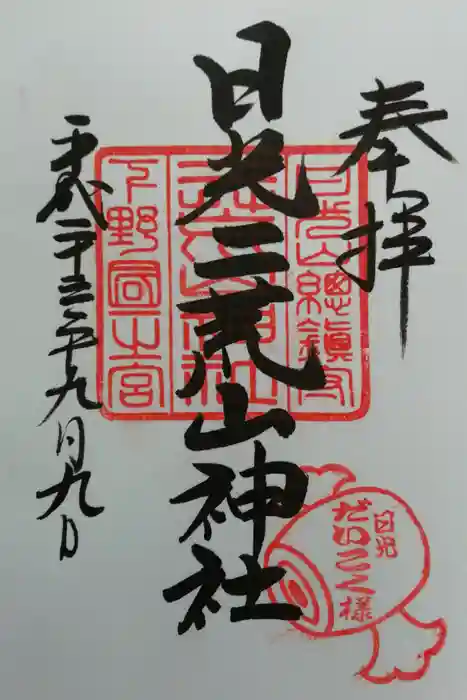 奉拝
日光二荒山神社
平成二十三年九月九日
日光山總鎮守
二荒山神社
下野國一之宮
日光
だいこく様